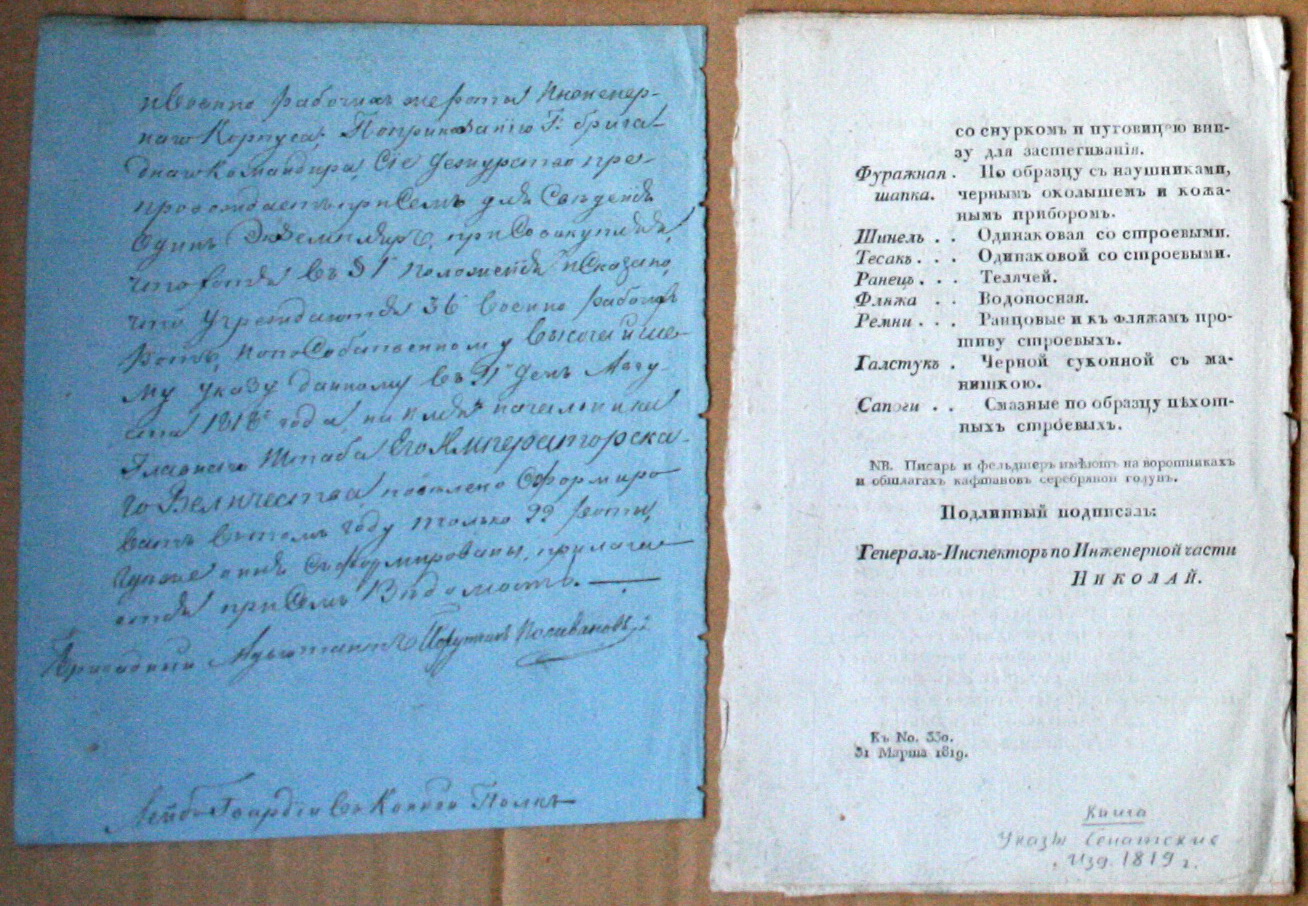 и Военно рабочихъ же ротъ Инженер-
наго Корпуса, По приказанію Г: брига-
днаго Командира, Сіе дежурство пре-
провождаетъ при Семъ для Сведенія
Одинъ Экземпляръ, присовокупляя,
что хотя въ § 1м положенія и Сказано,
что учреждаются 36 военно рабочихъ
ротъ, но по Собственному Высочайше-
му указу данному въ день Авгу-
ста 1818го года на имя начальника
Главнаго Штаба Его Императорска-
го Величества повелено Сформиро-
вать въ томъ году только 22 роты,
оныя Сформированы, прилага-
ется при Семъ Ведомость.
Бригадный Адъютантъ Порутчикъ Поливановъ
Лейбъ Гвардіи въ Конной Полкъ
со снуркомъ и пуговицею вни-
зу для застегиванія.
Фуражная . По образцу съ наушниками,
шапка. чернымъ околышемъ и кожа-
нымъ приборомъ.
Шинель . . Одинаковая со строевыми.
Тесакъ . . . Одинаковой со строевыми.
Ранецъ . . . Телячей.
Фляжа . . Водоносная.
Ремни . . . Ранцовые и къ фляжамъ про-
тиву строевыхъ.
Галстукъ . Черной суконной съ ма-
нишкою.
Сапоги . . Смазные по образцу пѣхот-
ныхъ строевыхъ.
NB. Писарь и фельдшеръ имѣютъ на воротникахъ
и обшлагахъ кафтановъ серебряной голунъ.
Подлинный подписалъ:
Генералъ-Инспекторъ по Инженерной части
НИКОЛАЙ.
Къ No. 330.
31 Марта 1819.
Книга
Указы Сенатские
Изд. 1819 г.